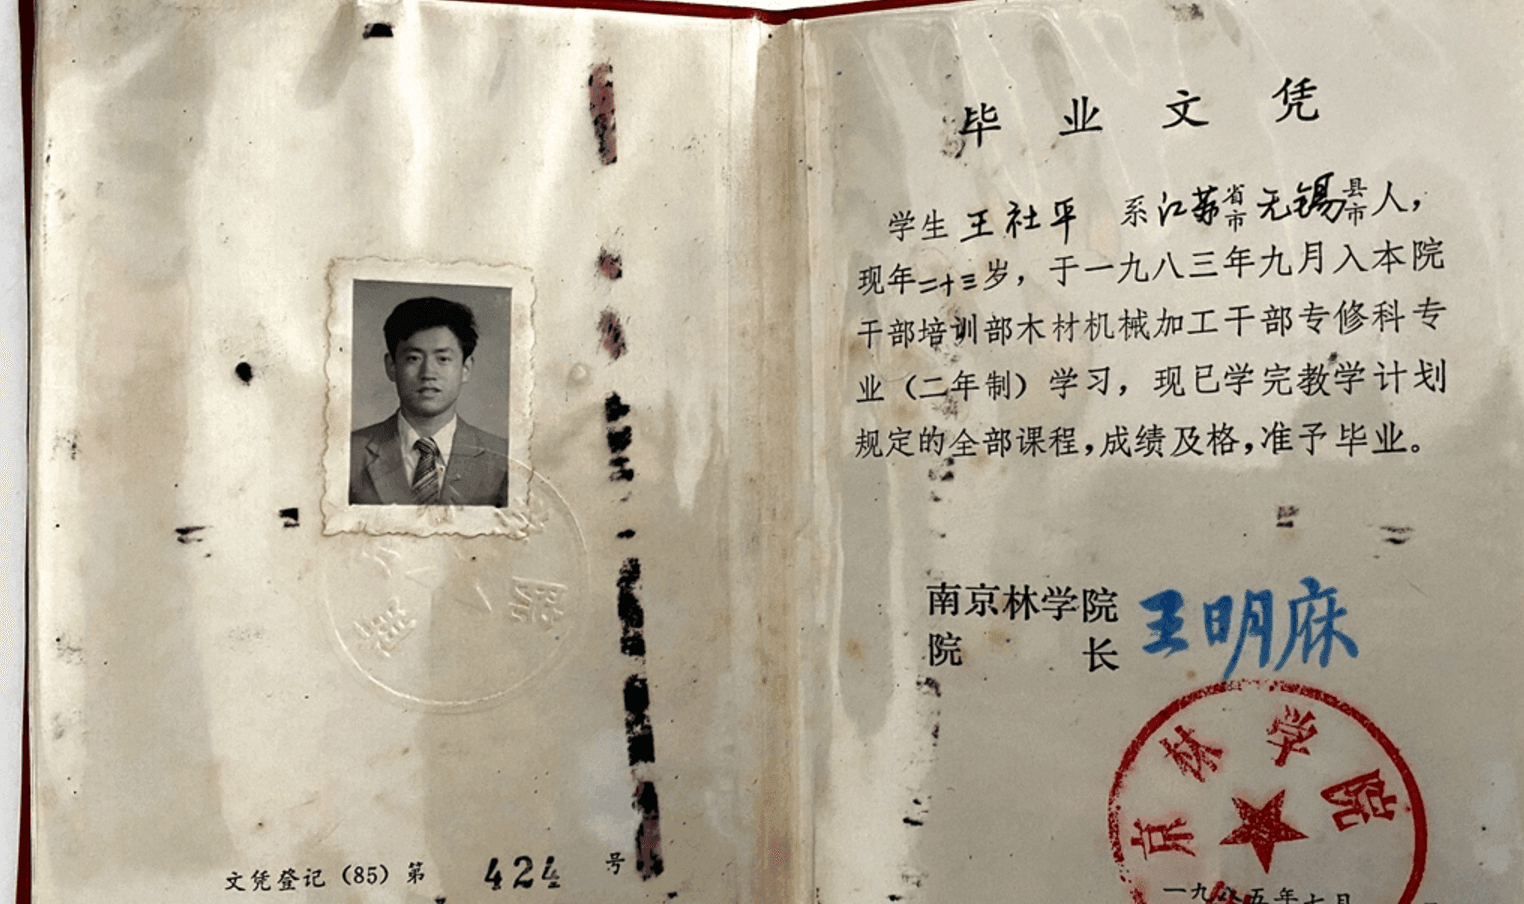 文凭登记(85)第 424 号
毕业文凭
学生 王社平 系江苏省市无锡县市人，
现年二十三岁，于一九八三年九月入本院
干部培训部木材机械加工干部专修科专
业(二年制)学习，现已学完教学计划
规定的全部课程，成绩及格，准予毕业。
南京林学院
院长 王明庥
京林学院
一九八五年七月